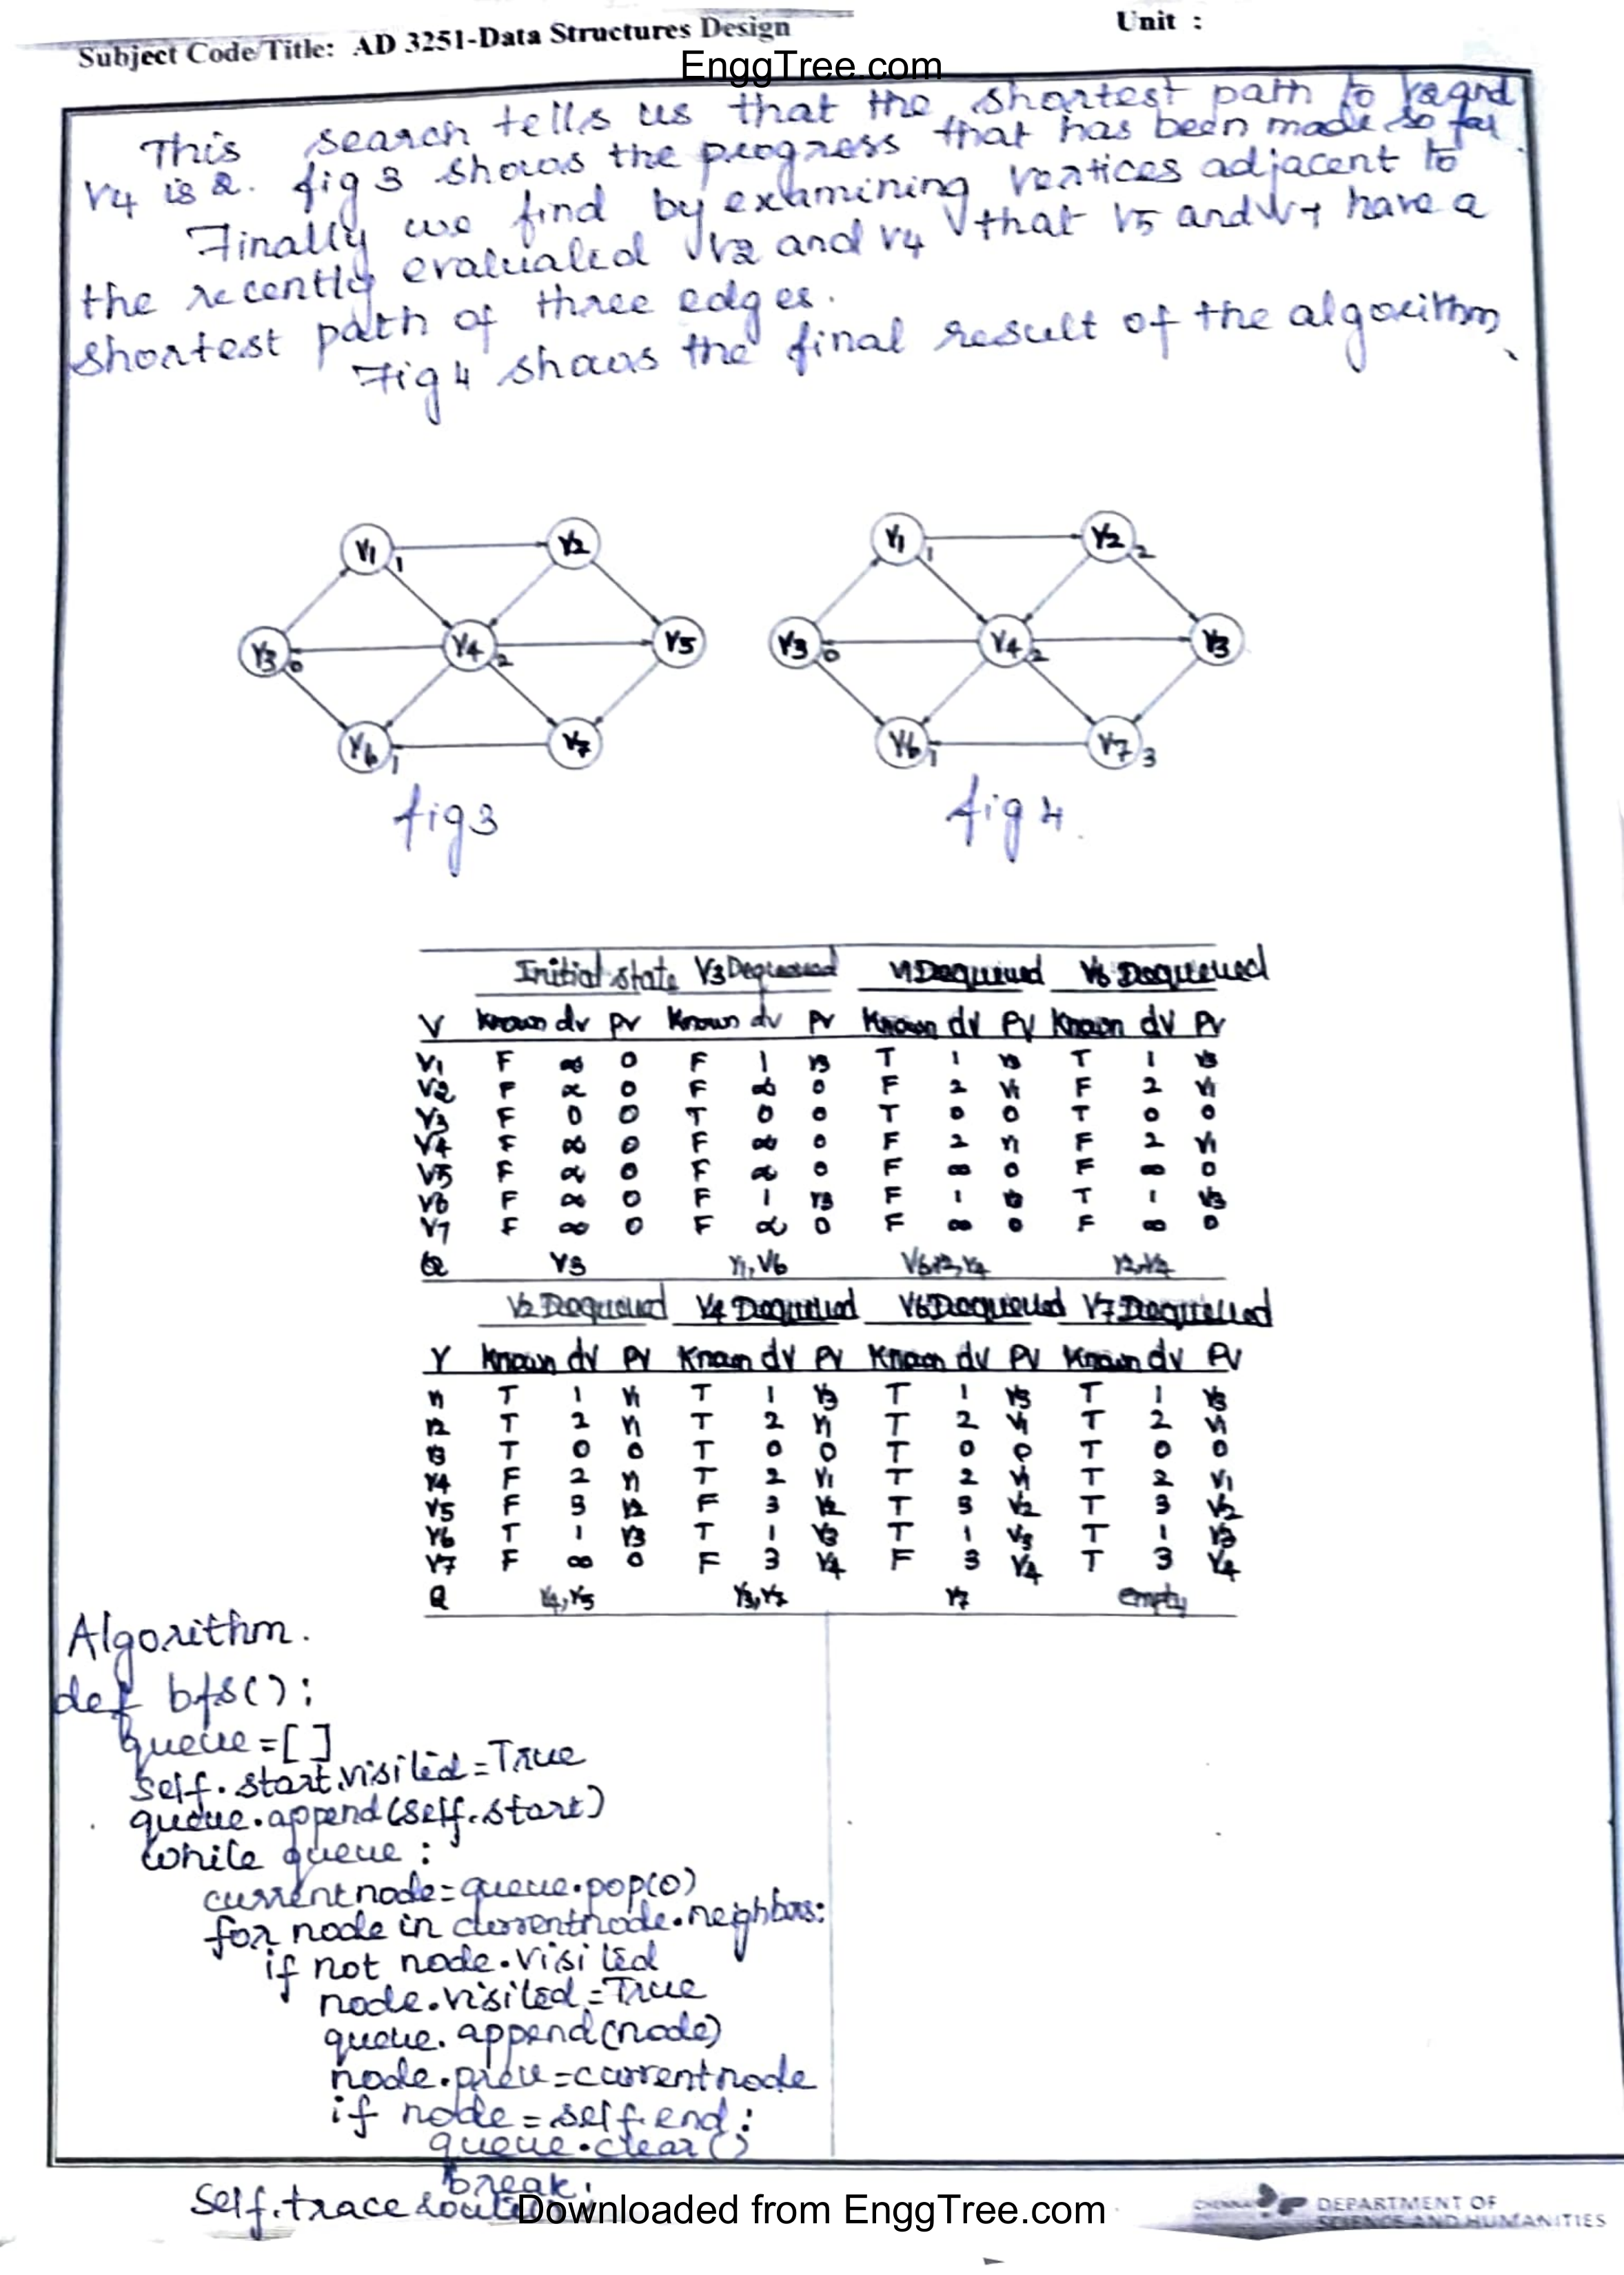 Subject Code/Title: AD 3251-Data Structures Design
Unit :
EnggTree.com
This search tells us that the shortest path to V2 and
V4 is 2. fig 3 shows the progress that has been made so far.
Finally we find by examining vertices adjacent to
the recently evaluated V2 and V4 that V5 and V7 have a
shortest path of three edges.
Fig 4 shows the final result of the algorithm
V1 1 V2
V3 0 V4 2 V5
V6 1 V7
fig 3
V1 1 V2 2
V3 0 V4 2 V3
V6 1 V7 3
fig 4.
Initial state V3 Dequeued V1 Dequeued V6 Dequeued
V Known dv pv Known dv Pv Known dv Pv Known dv Pv
V1 F ∞ 0 F 1 V3 T 1 V3 T 1 V3
V2 F ∞ 0 F ∞ 0 F 2 V1 F 2 V1
V3 F 0 0 T 0 0 T 0 0 T 0 0
V4 F ∞ 0 F ∞ 0 F 2 V1 F 2 V1
V5 F ∞ 0 F ∞ 0 F ∞ 0 F ∞ 0
V6 F ∞ 0 F 1 V3 F 1 V3 T 1 V3
V7 F ∞ 0 F ∞ 0 F ∞ 0 F ∞ 0
Q V3 V1, V6 V6, V2, V4
V2 Dequeued V4 Dequeued V6 Dequeued V7 Dequeued
V Known dv Pv Known dv Pv Known dv Pv Known dv Pv
V1 T 1 V1 T 1 V3 T 1 V3 T 1 V3
V2 T 2 V1 T 2 V1 T 2 V1 T 2 V1
V3 T 0 0 T 0 0 T 0 0 T 0 0
V4 F 2 V1 T 2 V1 T 2 V1 T 2 V1
V5 F 3 V2 F 3 V2 T 3 V2 T 3 V2
V6 T 1 V3 T 1 V3 T 1 V3 T 1 V3
V7 F ∞ 0 F 3 V4 F 3 V4 T 3 V4
Q V4, V5 V3, V7 V7 empty
Algorithm.
def bfs():
queue=[]
self.start.visited=True
queue.append(self.start)
while queue:
currentnode=queue.pop(0)
for node in currentnode.neighbors:
if not node.visited
node.visited=True
queue.append(node)
node.prev=currentnode
if node=self.end:
queue.clear()
break;
self.trace
Downloaded from EnggTree.com
DEPARTMENT OF
SCIENCE AND HUMANITIES